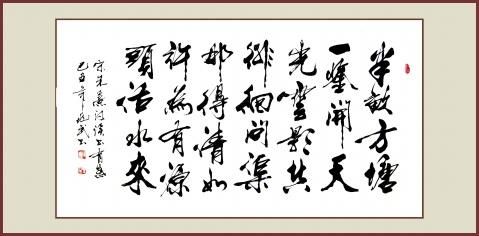 半畝方塘
一鑒開天
光雲影共
徘徊問渠
那得清如
許為有源
頭活水來
宋朱熹詩书有感
己丑年书